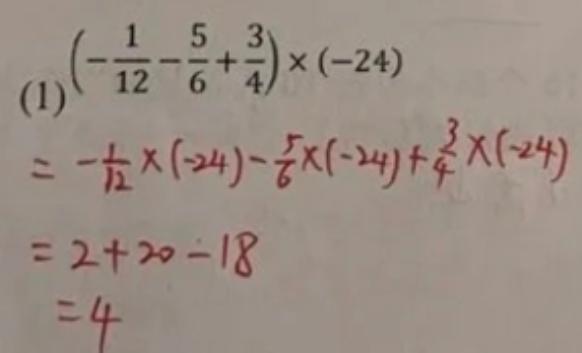 (1) (-1/12 - 5/6 + 3/4) × (-24)
= -1/12 × (-24) - 5/6 × (-24) + 3/4 × (-24)
= 2 + 20 - 18
= 4